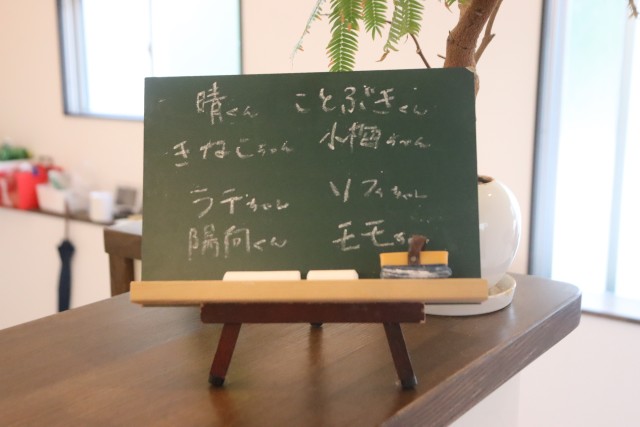 晴くん ことぶきくん
きなこちゃん 小梅ちゃん
ラテちゃん ソフィちゃん
陽向くん モモちゃ